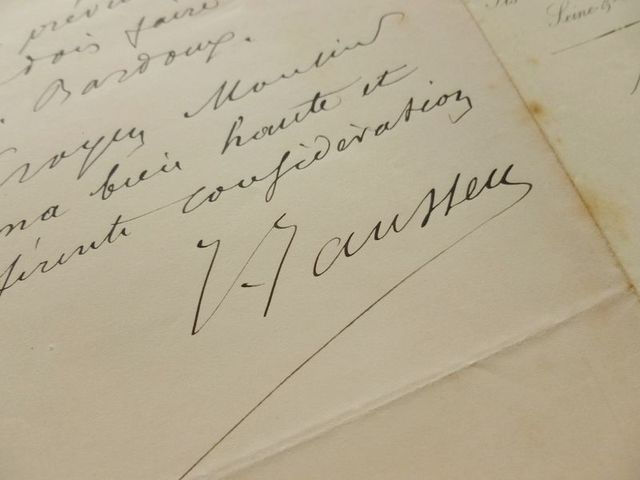 dois faire
Bardoux.
Croyez Monsieur
ma bien haute et
férente considération
J. Janssen
Seine-&